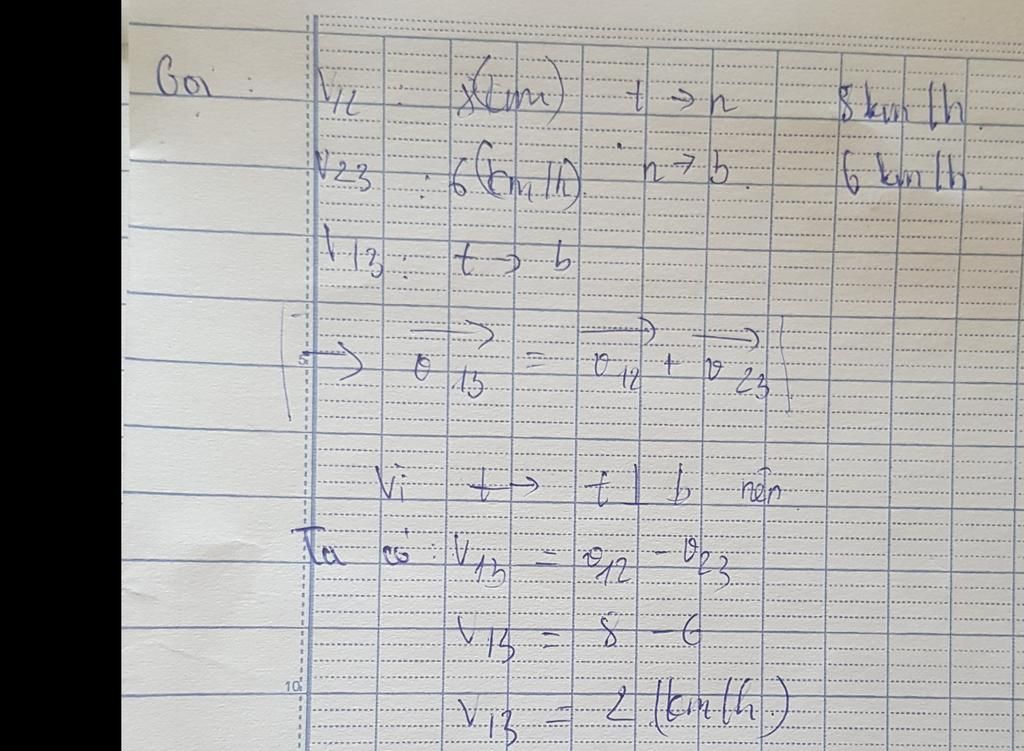 Gọi : V12 : 8(km) t → n 8 km/h
V23 : 6(km/h) n → b 6 km/h
V13 : t → b
→ v13 = v12 + v23
5
Vì t → t b nên
Ta có : V13 = v12 - v23
V13 = 8 - 6
10
V13 = 2 (km/h)